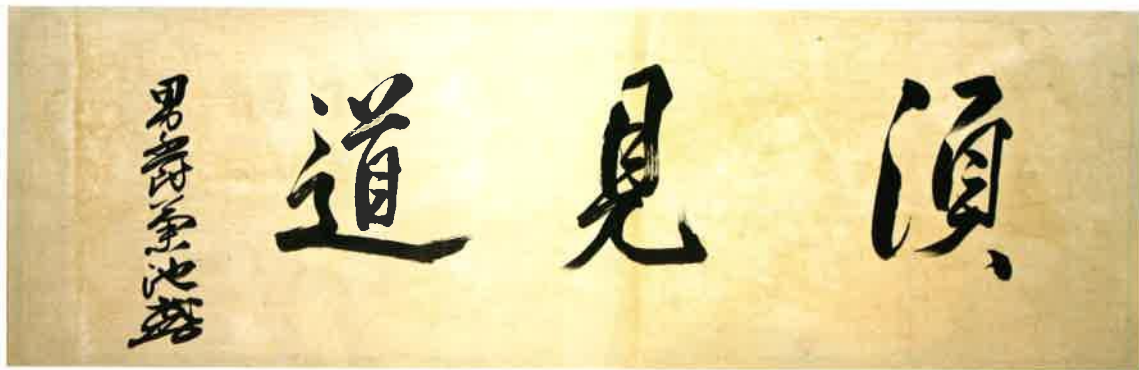 須見道
男爵菊池